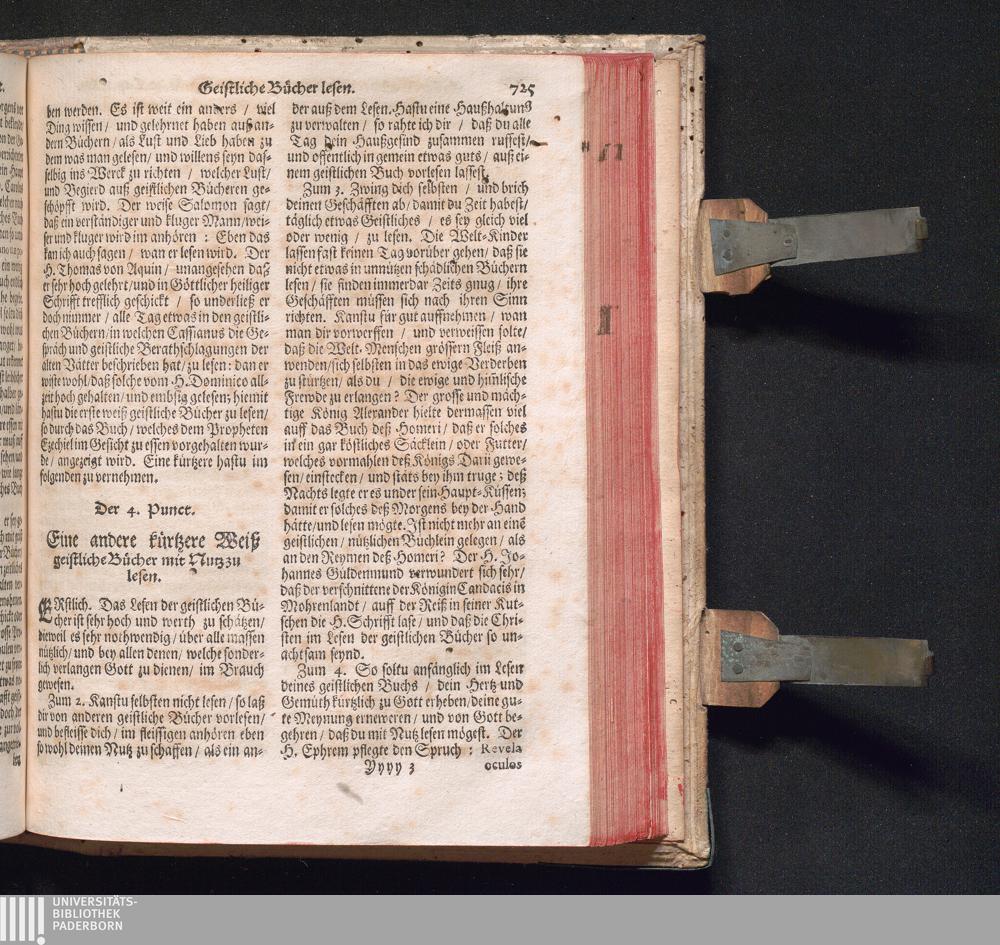 Geistliche Bücher lesen. 725
ben werden. Es ist weit ein anders / viel
Ding wissen / und gelehrnet haben auß an-
dern Büchern / als Lust und Lieb haben zu
dem was man gelesen / und willens seyn das-
selbig ins Werck zu richten / welcher Lust /
und Begierd auß geistlichen Bücheren ge-
schöpfft wird. Der weise Salomon sagt /
daß ein verständiger und kluger Mann / wei-
ser und kluger wird im anhören : Eben das
kan ich auch sagen / wan er lesen wird. Der
H. Thomas von Aquin / unangesehen daß
er sehr hoch gelehrt / und in Göttlicher heiliger
Schrifft trefflich geschickt / so underließ er
doch nimmer / alle Tag etwas in den geistli-
chen Büchern / in welchen Cassianus die Ge-
spräch und geistliche Berathschlagungen der
alten Vätter beschrieben hat / zu lesen : dan er
wiste wohl / daß solche vom H. Dominico all-
zeit hoch gehalten / und embsig gelesen; hiemit
hastu die erste weiß geistliche Bücher zu lesen /
so durch das Buch / welches dem Propheten
Ezechiel im Gesicht zu essen vorgehalten wur-
de / angezeigt wird. Eine kürtzere hastu im
folgenden zu vernehmen.
Der 4. Punct.
Eine andere kürtzere Weiß
geistliche Bücher mit Nutz zu
lesen.
ERstlich. Das Lesen der geistlichen Bü-
cher ist sehr hoch und werth zu schätzen /
dieweil es sehr nothwendig / über alle massen
nützlich / und bey allen denen / welche sonder-
lich verlangen Gott zu dienen / im Brauch
gewesen.
Zum 2. Kanstu selbsten nicht lesen / so laß
dir von anderen geistliche Bücher vorlesen /
und befleisse dich / im fleissigen anhören eben
so wohl deinen Nutz zu schaffen / als ein an-
der auß dem Lesen. Hastu eine Haußhaltung
zu verwalten / so rahte ich dir / daß du alle
Tag dein Haußgesind zusammen ruffest /
und offentlich in gemein etwas guts / auß ei-
nem geistlichen Buch vorlesen lassest.
Zum 3. Zwing dich selbsten / und brich
deinen Geschäfften ab / damit du Zeit habest /
täglich etwas Geistliches / es sey gleich viel
oder wenig / zu lesen. Die Welt-Kinder
lassen fast keinen Tag vorüber gehen / daß sie
nicht etwas in unnützen schädlichen Büchern
lesen / sie finden immerdar Zeits gnug / ihre
Geschäfften müssen sich nach ihren Sinn
richten. Kanstu für gut auffnehmen / wan
man dir vorwerffen / und verweissen solte /
daß die Welt-Menschen grössern Fleiß an-
wenden / sich selbsten in das ewige Verderben
zu stürtzen / als du / die ewige und him̃lische
Frewde zu erlangen? Der grosse und mäch-
tige König Alexander hielte dermassen viel
auff das Buch deß Homeri / daß er solches
in ein gar köstliches Säcklein / oder Futter /
welches vormahlen deß Königs Darii gewe-
sen / einstecken / und stäts bey ihm truge; deß
Nachts legte er es under sein Haupt-Küssen;
damit er solches deß Morgens bey der Hand
hätte / und lesen mögte. Ist nicht mehr an einē
geistlichen / nützlichen Büchlein gelegen / als
an den Reymen deß Homeri? Der H. Jo-
hannes Güldenmund verwundert sich sehr /
daß der verschnittene der Königin Candacis in
Mohrenlandt / auff der Reiß in seiner Kut-
schen die H. Schrifft lase / und daß die Chri-
sten im Lesen der geistlichen Bücher so un-
achtsam seynd.
Zum 4. So soltu anfänglich im Lesen
deines geistlichen Buchs / dein Hertz und
Gemüth kürtzlich zu Gott erheben / deine gu-
te Meynung erneweren / und von Gott be-
gehren / daß du mit Nutz lesen mögest. Der
H. Ephrem pflegte den Spruch : Revela
Yyyy 3 oculos
UNIVERSITÄTS-
BIBLIOTHEK
PADERBORN